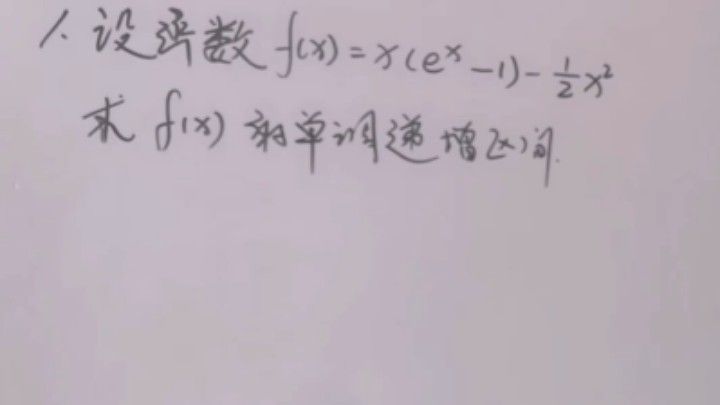 1. 设函数 f(x) = x(eˣ - 1) - ½x²
求 f(x) 的单调递增区间.